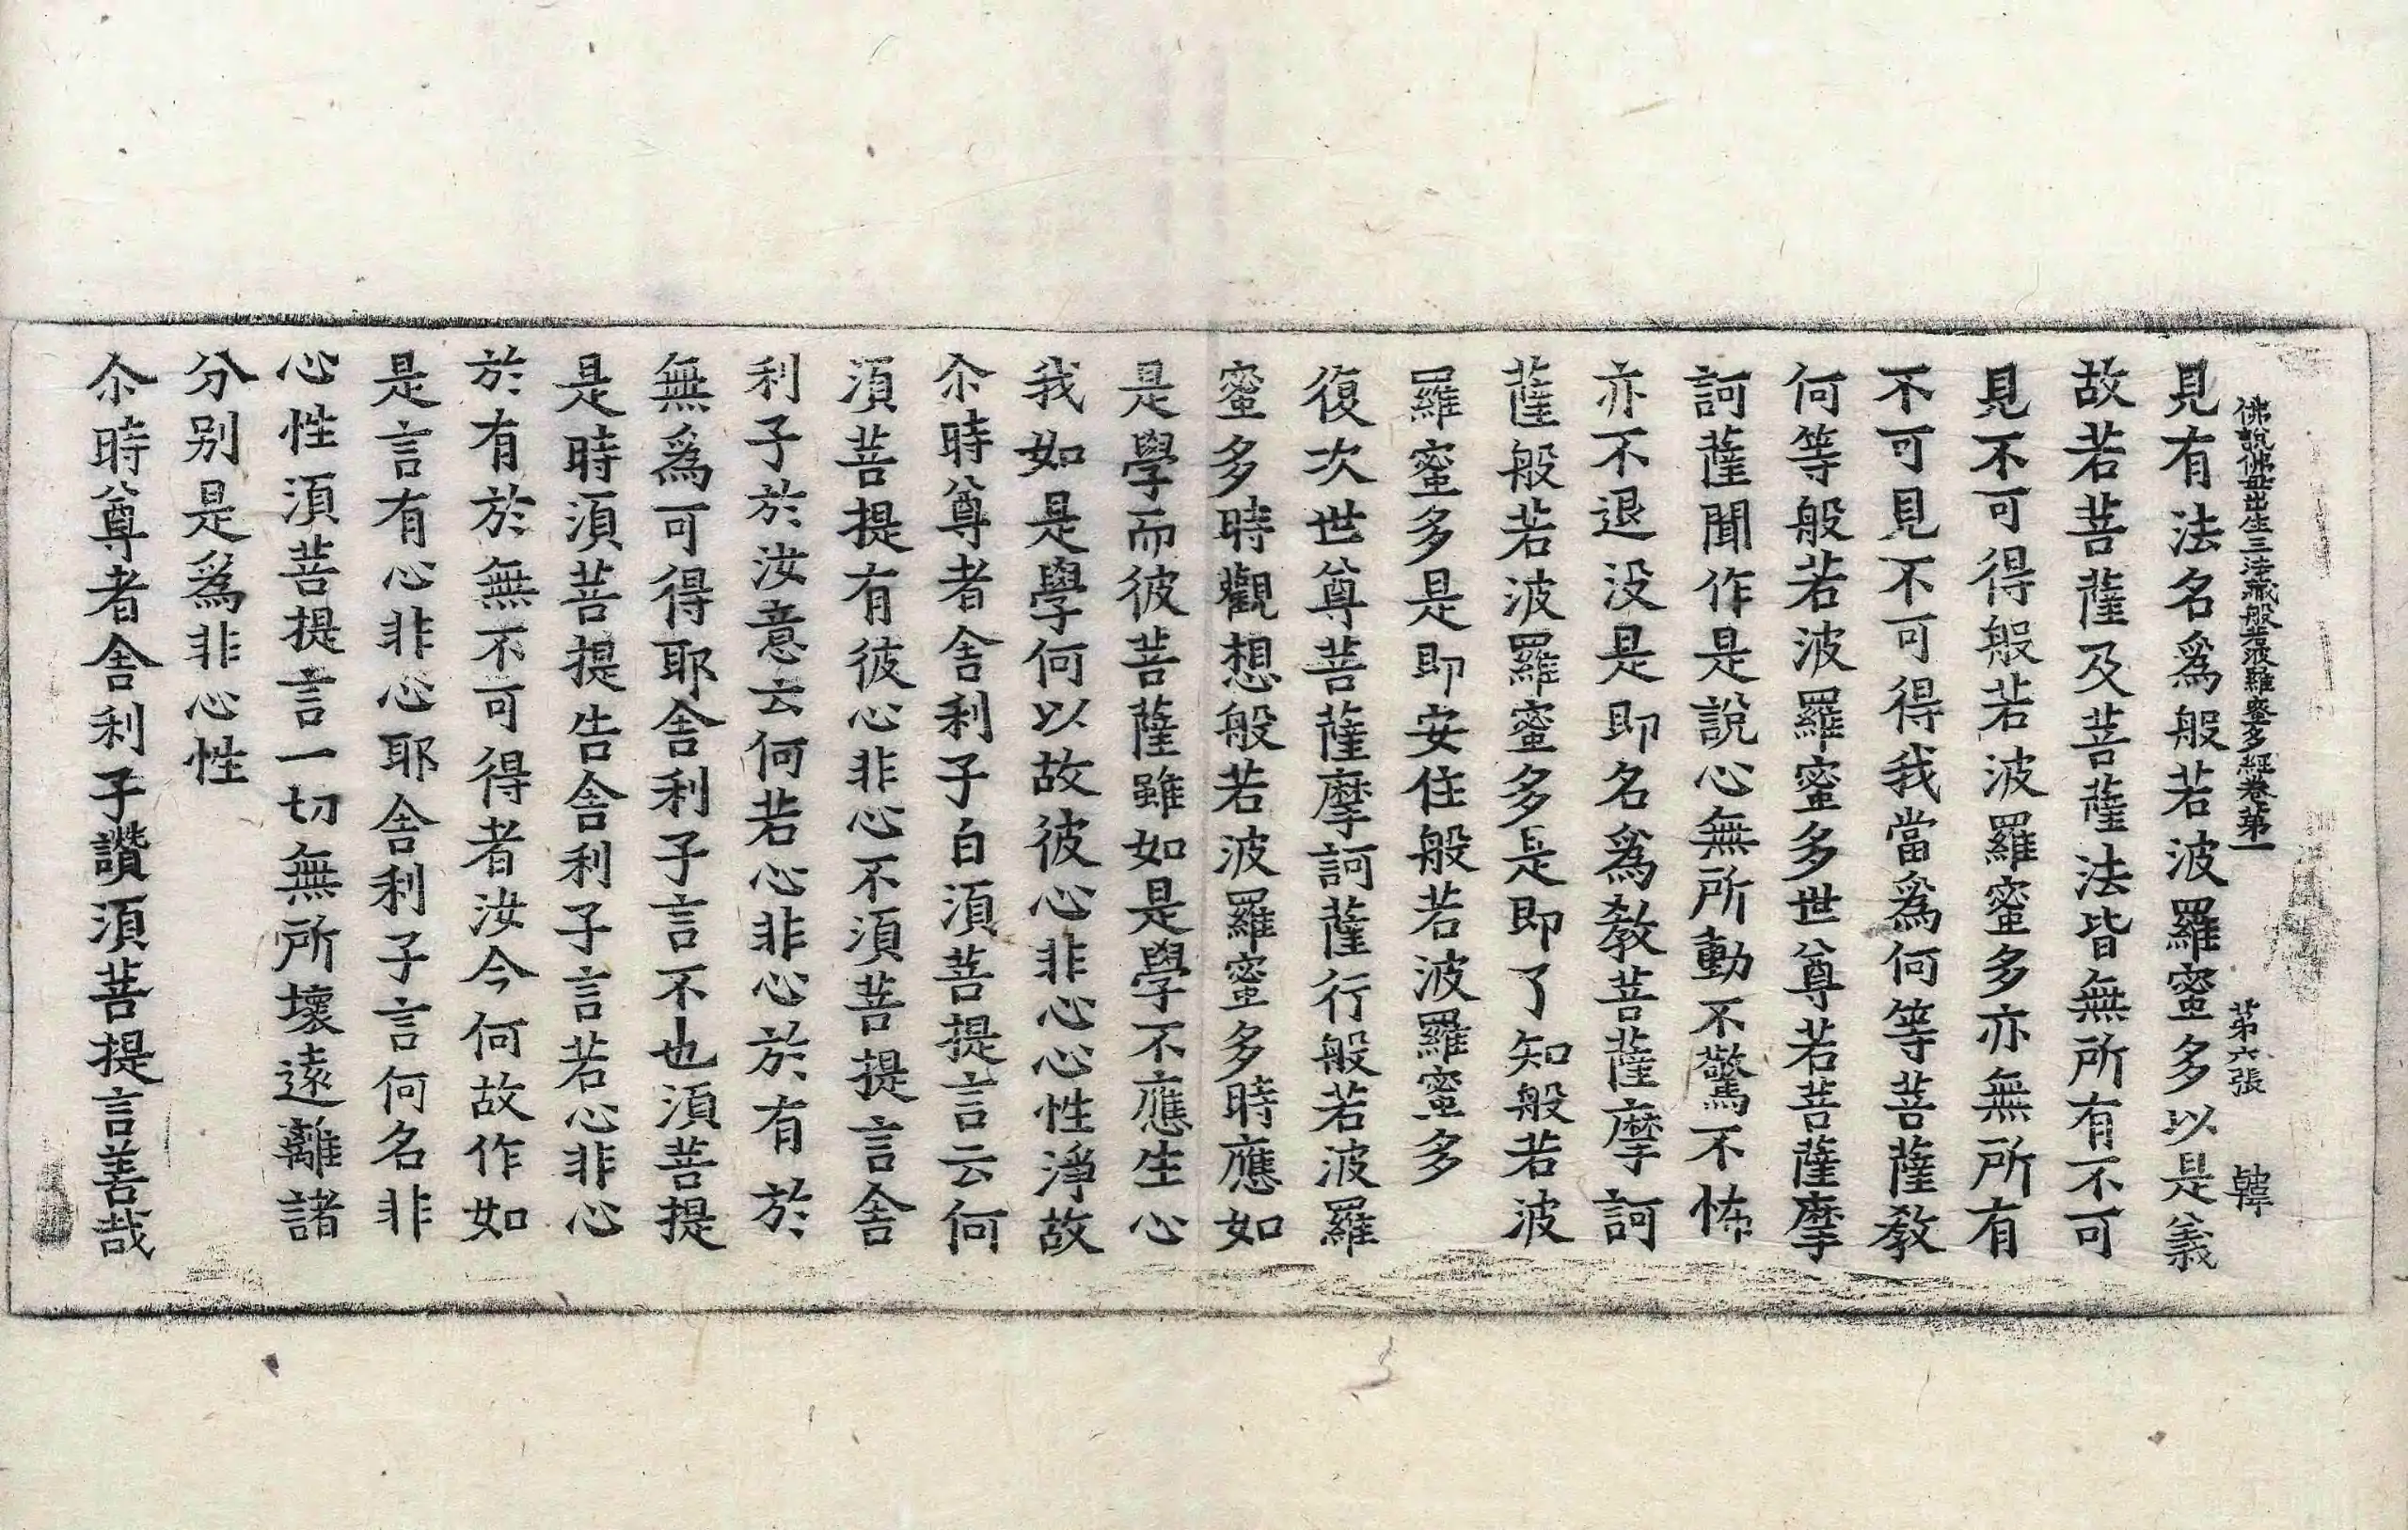 佛說佛母出生三法藏般若波羅蜜多經卷苐一 苐六張 韓
見有法名爲般若波羅蜜多以是義
故若菩薩及菩薩法皆無所有不可
見不可得般若波羅蜜多亦無所有
不可見不可得我當爲何等菩薩教
何等般若波羅蜜多世尊若菩薩摩
訶薩聞作是說心無所動不驚不怖
亦不退没是即名爲教菩薩摩訶
薩般若波羅蜜多是即了知般若波
羅蜜多是即安住般若波羅蜜多
復次世尊菩薩摩訶薩行般若波羅
蜜多時觀想般若波羅蜜多時應如
是學而彼菩薩雖如是學不應生心
我如是學何以故彼心非心心性淨故
尒時尊者舍利子白湏菩提言云何
湏菩提有彼心非心不湏菩提言舍
利子於汝意云何若心非心於有於
無爲可得耶舍利子言不也湏菩提
是時湏菩提告舍利子言若心非心
於有於無不可得者汝今何故作如
是言有心非心耶舍利子言何名非
心性湏菩提言一切無所壞遠離諸
分别是爲非心性
尒時尊者舍利子讚湏菩提言善哉